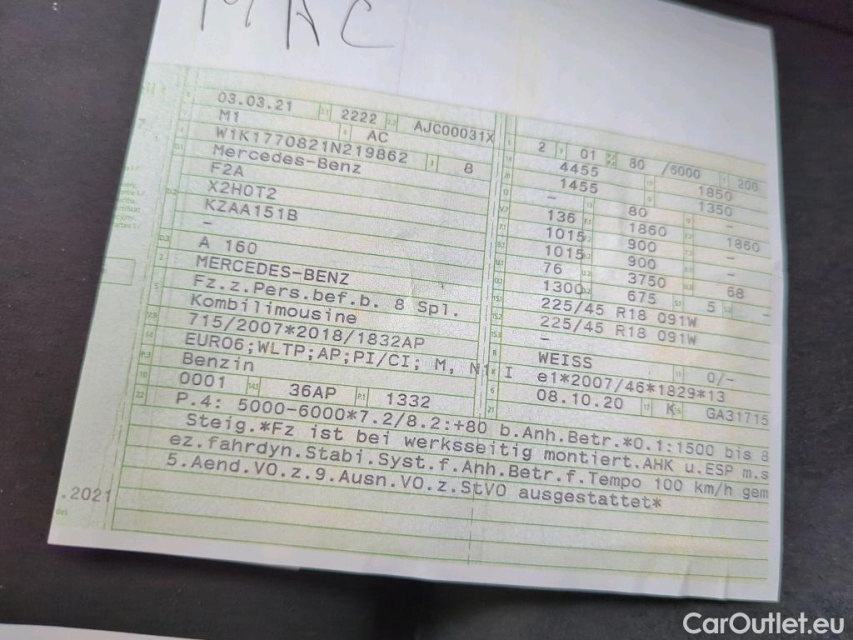 MAC
03.03.21 2222 AJC00031X
M1 AC
W1K1770821N219862 8
Mercedes-Benz
F2A
X2H0T2
KZAA151B
-
A 160
MERCEDES-BENZ
Fz.z.Pers.bef.b. 8 Spl.
Kombilimousine
715/2007*2018/1832AP
EURO6;WLTP;AP;PI/CI; M, N1 I
Benzin
0001 36AP 1332
2 01 80 /5000 200
4455 1850
1455 1350
- 80 -
136 1860 1860
1015 900 -
1015 900 -
76 3750 68
1300 675 5 -
225/45 R18 091W
225/45 R18 091W
-
WEISS 0/-
e1*2007/46*1829*13
08.10.20 K GA31715
P.4: 5000-6000*7.2/8.2:+80 b.Anh.Betr.*0.1:1500 bis 8
Steig.*Fz ist bei werksseitig montiert.AHK u.ESP m.s
ez.fahrdyn.Stabi.Syst.f.Anh.Betr.f.Tempo 100 km/h gem
5.Aend.VO.z.9.Ausn.VO.z.StVO ausgestattet*
.2021
CarOutlet.eu